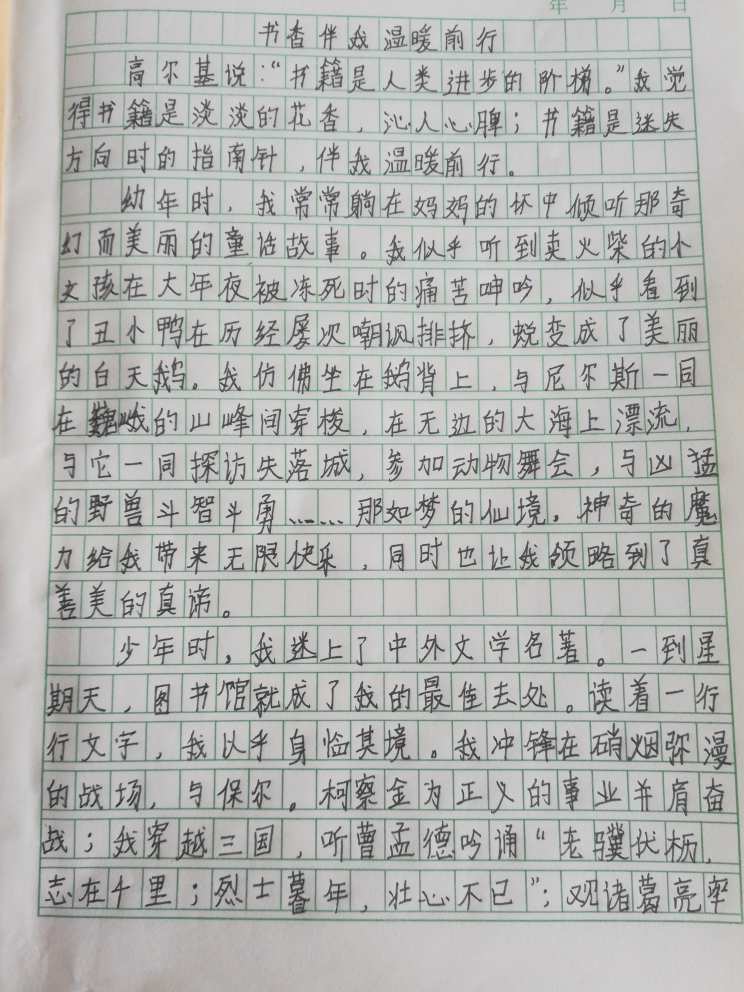 年 月 日
书香伴我温暖前行
高尔基说:“书籍是人类进步的阶梯。”我觉
得书籍是淡淡的花香,沁人心脾;书籍是迷失
方向时的指南针,伴我温暖前行。
幼年时,我常常躺在妈妈的怀中倾听那奇
幻而美丽的童话故事。我似乎听到卖火柴的小
女孩在大年夜被冻死时的痛苦呻吟,似乎看到
了丑小鸭在历经屡次嘲讽排挤,蜕变成了美丽
的白天鹅。我仿佛坐在鹅背上,与尼尔斯一同
在巍峨的山峰间穿梭,在无边的大海上漂流,
与它一同探访失落城,参加动物舞会,与凶猛
的野兽斗智斗勇……那如梦的仙境,神奇的魔
力给我带来无限快乐,同时也让我领略到了真
善美的真谛。
少年时,我迷上了中外文学名著。一到星
期天,图书馆就成了我的最佳去处。读着一行
行文字,我以乎身临其境。我冲锋在硝烟弥漫
的战场,与保尔。柯察金为正义的事业并肩奋
战;我穿越三国,听曹孟德吟诵“老骥伏枥,
志在千里;烈士暮年,壮心不已”;观诸葛亮率